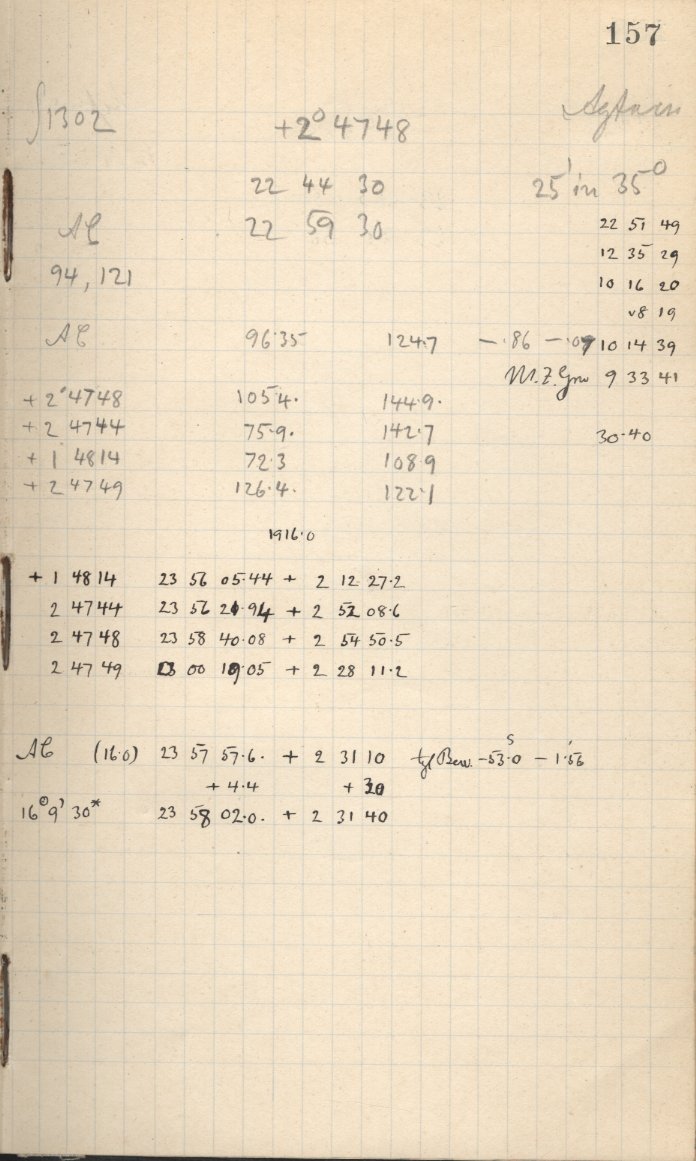 157
∫1302 +2° 4748
22 44 30 25' in 35°
AE 22 59 30 22 51 49
94, 121 12 35 29
10 16 20
v8 19
AE 96.35 124.7 — .86 — .07 10 14 39
M.Z. Grw 9 33 41
+ 2° 4748 105.4. 144.9.
+ 2 4744 75.9. 142.7 30.40
+ 1 4814 72.3 108.9
+ 2 4749 126.4. 122.1
1916.0
+ 1 4814 23 56 05.44 + 2 12 27.2
2 4744 23 56 21.94 + 2 52 08.6
2 4748 23 58 40.08 + 2 54 50.5
2 4749 00 19.05 + 2 28 11.2
AE (16.0) 23 57 57.6. + 2 31 10 tgl Bew. -53.0ˢ - 1.56'
+ 4.4 + 30
16° 9' 30* 23 58 02.0. + 2 31 40